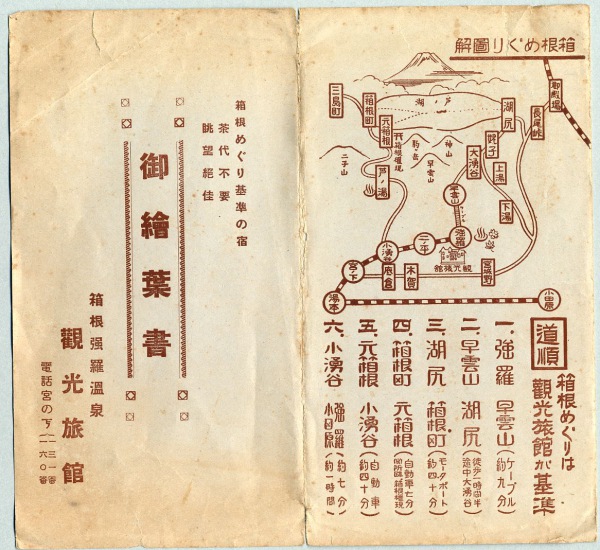 箱根めぐり圖解
御殿場
長尾峠
湖尻
芦ノ湖
箱根町
三島町
元箱根
箱根権現
駒ヶ岳
神山
早雲山
二子山
姥子
大湧谷
上湯
下湯
芦ノ湯
早雲山
強羅
二ノ平
小湧谷
宮ノ下
底倉
木賀
宮城野
観光旅館
湯本
小田原
道順
箱根めぐりは
觀光旅館が基準
一、強羅 早雲山 (ケーブル 約九分)
二、早雲山 湖尻 (徒歩一時間半 途中大湧谷)
三、湖尻 箱根町 (モータボート 約四十分)
四、箱根町 元箱根 (自動車七分 関所跡箱根権現)
五、元箱根 小湧谷 (自動車 約四十分)
六、小湧谷 強羅 (約七分) 小田原 (約一時間)
箱根めぐり基準の宿
茶代不要
眺望絶佳
御繪葉書
箱根強羅溫泉
觀光旅館
電話宮の下 二三一番 二六〇番